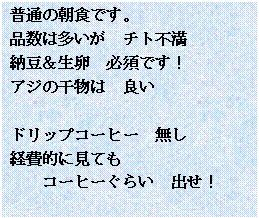 普通の朝食です。
品数は多いが　チト不満
納豆＆生卵　必須です！
アジの干物は　良い

ドリップコーヒー　無し
経費的に見ても
　　コーヒーぐらい　出せ！